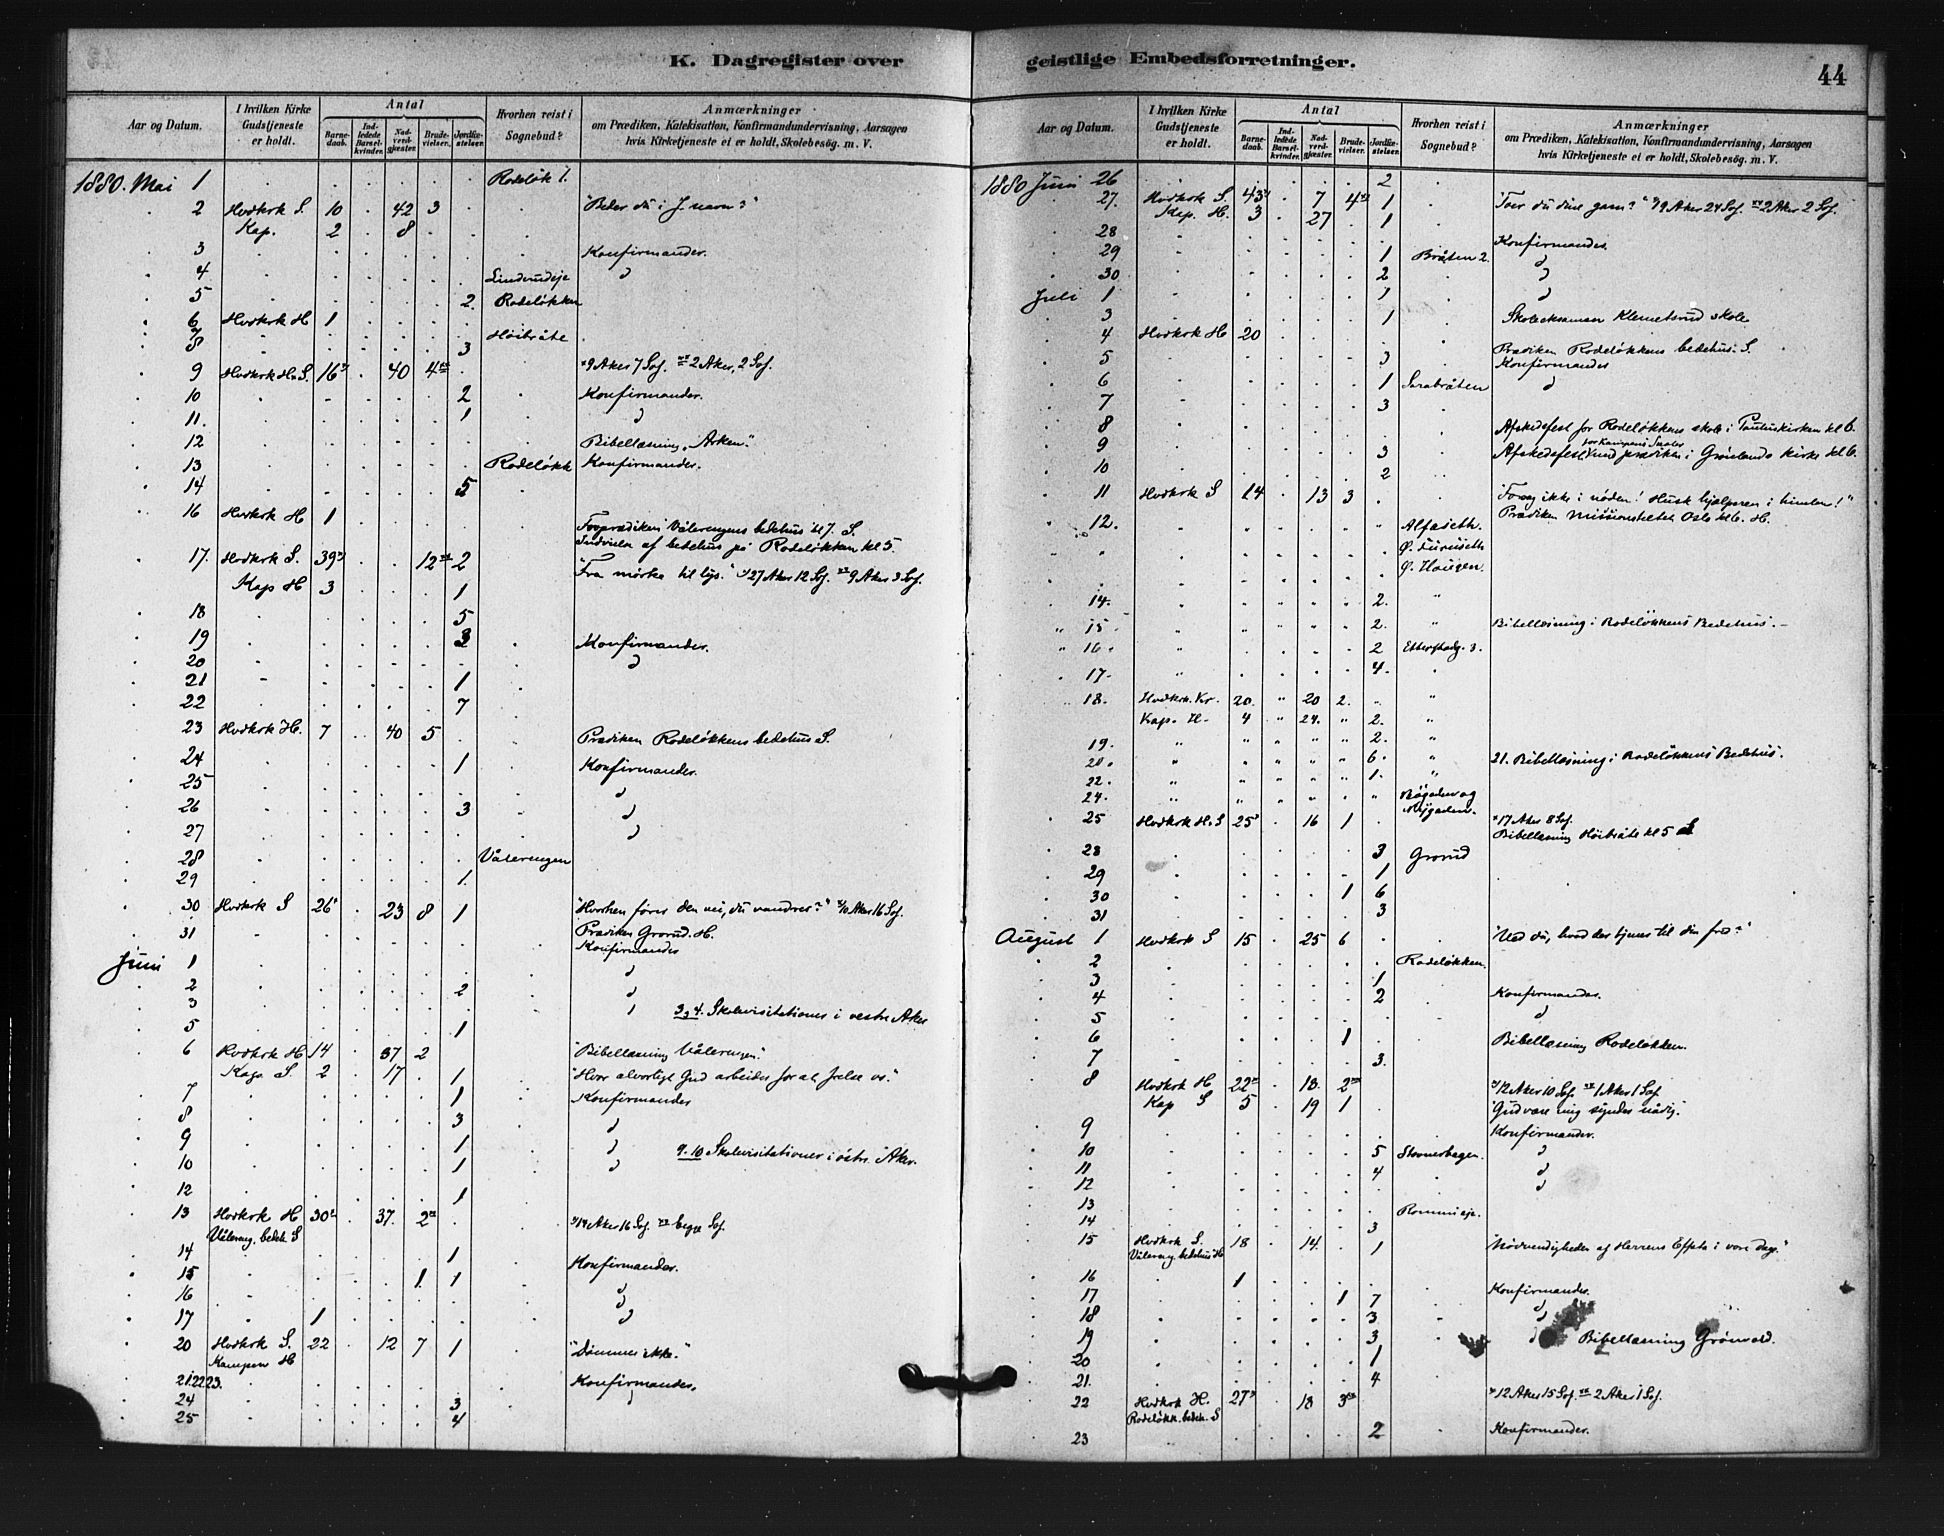 K. Dagregister over
Aar og Datum. | I hvilken Kirke Gudstjeneste er holdt. | Antal | Barnedaab. | Indledede Barselkvinder. | Nadverdgjæster. | Brudevielser. | Jordfæstelser. | Hvorhen reist i Sognebud? | Anmærkninger om Prædiken, Katekisation, Konfirmandundervisning, Aarsagen hvis Kirketjeneste ei er holdt, Skolebesög. m. V.
1880. Mai 1 Rodeløk
2 Hvdkrk S. 10 42 3 "Beder du i J. navn?"
Kap. 2 8
3 Konfirmander.
4 Linderudeje d
5 2. Rodeløkken
6 Hvdkrk H 1
7 Höibråte
8 3
9 Hvdkrk H.S. 16 40 4 9 Aker 7 Sof. 2 Aker, 2 Sof.
10 2 Konfirmander.
11. 1 d
12 Bibellæsning "Arken".
13 Rodeløkk Konfirmander.
14 5
16 Hvdkrk H 1 Foprædiken Vålerengens bedehus kl 7. S.
Indvielse af bedehus på Rodeløkken kl 5.
17. Hvdkrk S. 39 12 2 "Fra mørke til lys." 27 Aker 12 Sof. 9 Aker 3 Sof.
Kap H 3 1
18 5
19 3 Konfirmander.
20 d
21 1
22 7
23 Hvdkrk H. 7 40 5 Prædiken Rodeløkkens bedehus S.
24 1 Konfirmander.
25 d
26 3 d
27 d
28 Vålerengen
29 1.
30 Hvdkrk S 26 23 8 1 "Hvorhen fører den vei, du vandrer?" 10 Aker 16 Sof.
31 Prædiken Grorud. H.
Konfirmander
Juni 1 d
2 2 d
3 3 & 4. Skolevisitationer i vestre Aker
5 1
6 Hvdkrk H 14 37 2 "Bibellæsning Vålerengen".
Kap. S. 2 17 1 "Hvor alvorligt Gud arbeider for at frelse os."
7 1 Konfirmander
8 3 d
9 1 d 9-10 Skolevisitationer i østr. Aker.
10 1 d
12 1
13 Hvdkrk H 30 37. 2 14 Aker 16 Sof. begge Sof.
Vålereng. bedeh. S
14 1 Konfirmander.
15 1 1
16 d
17 1 d
20 Hvdkrk S. 22 12 7 1 "Dømmer ikke."
Kampen H
21.22.23. Konfirmander.
24 3 d
25 4
geistlige Embedsforretninger. 44
Aar og Datum. | I hvilken Kirke Gudstjeneste er holdt. | Antal | Barnedaab. | Indledede Barselkvinder. | Nadverdgjæster. | Brudevielser. | Jordfæstelser. | Hvorhen reist i Sognebud? | Anmærkninger om Prædiken, Katekisation, Konfirmandundervisning, Aarsagen hvis Kirketjeneste ei er holdt, Skolebesög. m. V.
1880 Juni 26 2
27. Hvdkrk S. 43 7 4 1 19 Aker 24 Sof. 2 Aker 2 Sof.
Kap. H. 3 27 1
28 Konfirmander.
29 1 Bråten 2. d
30 2 d
Juli 1 1 d
3 1 Skoleeksamen Klemetsrud skole
4 Hvdkrk H 20 Prædiken Rodeløkkens bedehus. S.
5 3 Konfirmander
6 1 Sarabråten d
7 3
8 Afskedsfest for Rodeløkkens skole i Pauluskirken kl 6.
9 3 Afskedsfest for Kampens Skoler med prædiken i Grønlands kirke kl 6.
10 2
11 Hvdkrk S 14 13 3 "Forsag ikke i nøden! Husk hjælperen i himlen!"
12. Alfaseth. Prædiken Missionsteltet Oslo kl 6. H.
Ø. Furuseth
Ø. Haugen.
14. 2.
15 2. Bibellæsning i Rodeløkkens Bedehus.
16. 2 Etterstadg. 3.
17. 4.
18. Hvdkrk. Kr. 20. 20 2.
Kap. H. 4 24. 2.
19. 2.
20. 6. 21. Bibellæsning i Rodeløkkens Bedehus.
22. 1.
24. Bøgaden og Nygaden.
25 Hvdkrk H.S 25 16 1 17 Aker 8 Sof.
Bibellæsning Höibråte kl 5 S
28 3 Grorud
29 1
30 1 6
31 3
August 1 Hvdkrk S 15 25 6 "Ved du, hvad der tjener til din fred?"
2 Rodeløkken.
3 1
4 2 Konfirmander.
5 d
6 1 Bibellæsning Rodeløkken.
7 3.
8 Hvdkrk H 22 18. 2 12 Aker 10 Sof. 1 Aker 1 Sof.
Kap S 5 19 1 "Gud være mig synder nådig."
9 Konfirmander.
10 5 Stovnerhagen. d
11 4 d
12 d
13 Rommi eje.
14 3
15 Hvdkrk S. 18 14. 1 "Nødvendigheden af Herrens Effata i vore dage."
Vålereng. bedehus H.
16 1
17 1 7 Konfirmander.
18 3 d
19 3 d Bibellæsning Grönvold.
20 1
21. 4
22 Hvdkrk H. 27 18 3 12 Aker 15 Sof. 2 Aker 1 Sof.
Rodeløkk. bedeh. S
23 2 Konfirmander.